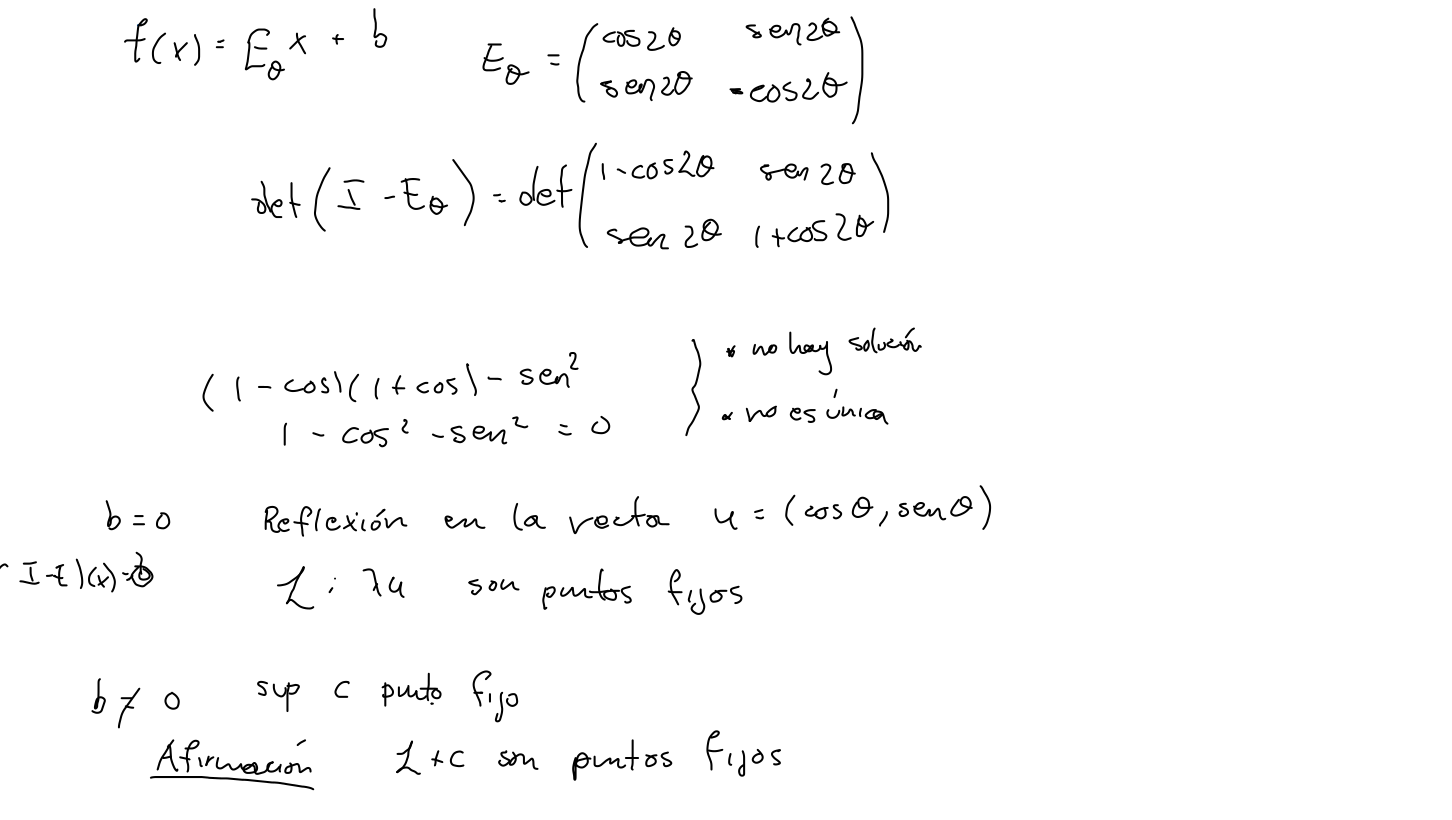 f(x) = E_θ x + b    E_θ = ( cos2θ  sen2θ
sen2θ  -cos2θ )
det( I - E_θ ) = det( 1-cos2θ  sen2θ
sen2θ  1+cos2θ )
(1 - cos)(1 + cos) - sen²    } • no hay solución
1 - cos² - sen² = 0    • no es única
b = 0    Reflexión en la recta u = (cosθ, senθ)
I-E)(x)=    L : λu son puntos fijos
b ≠ 0    sup c punto fijo
Afirmación    L + c son puntos fijos